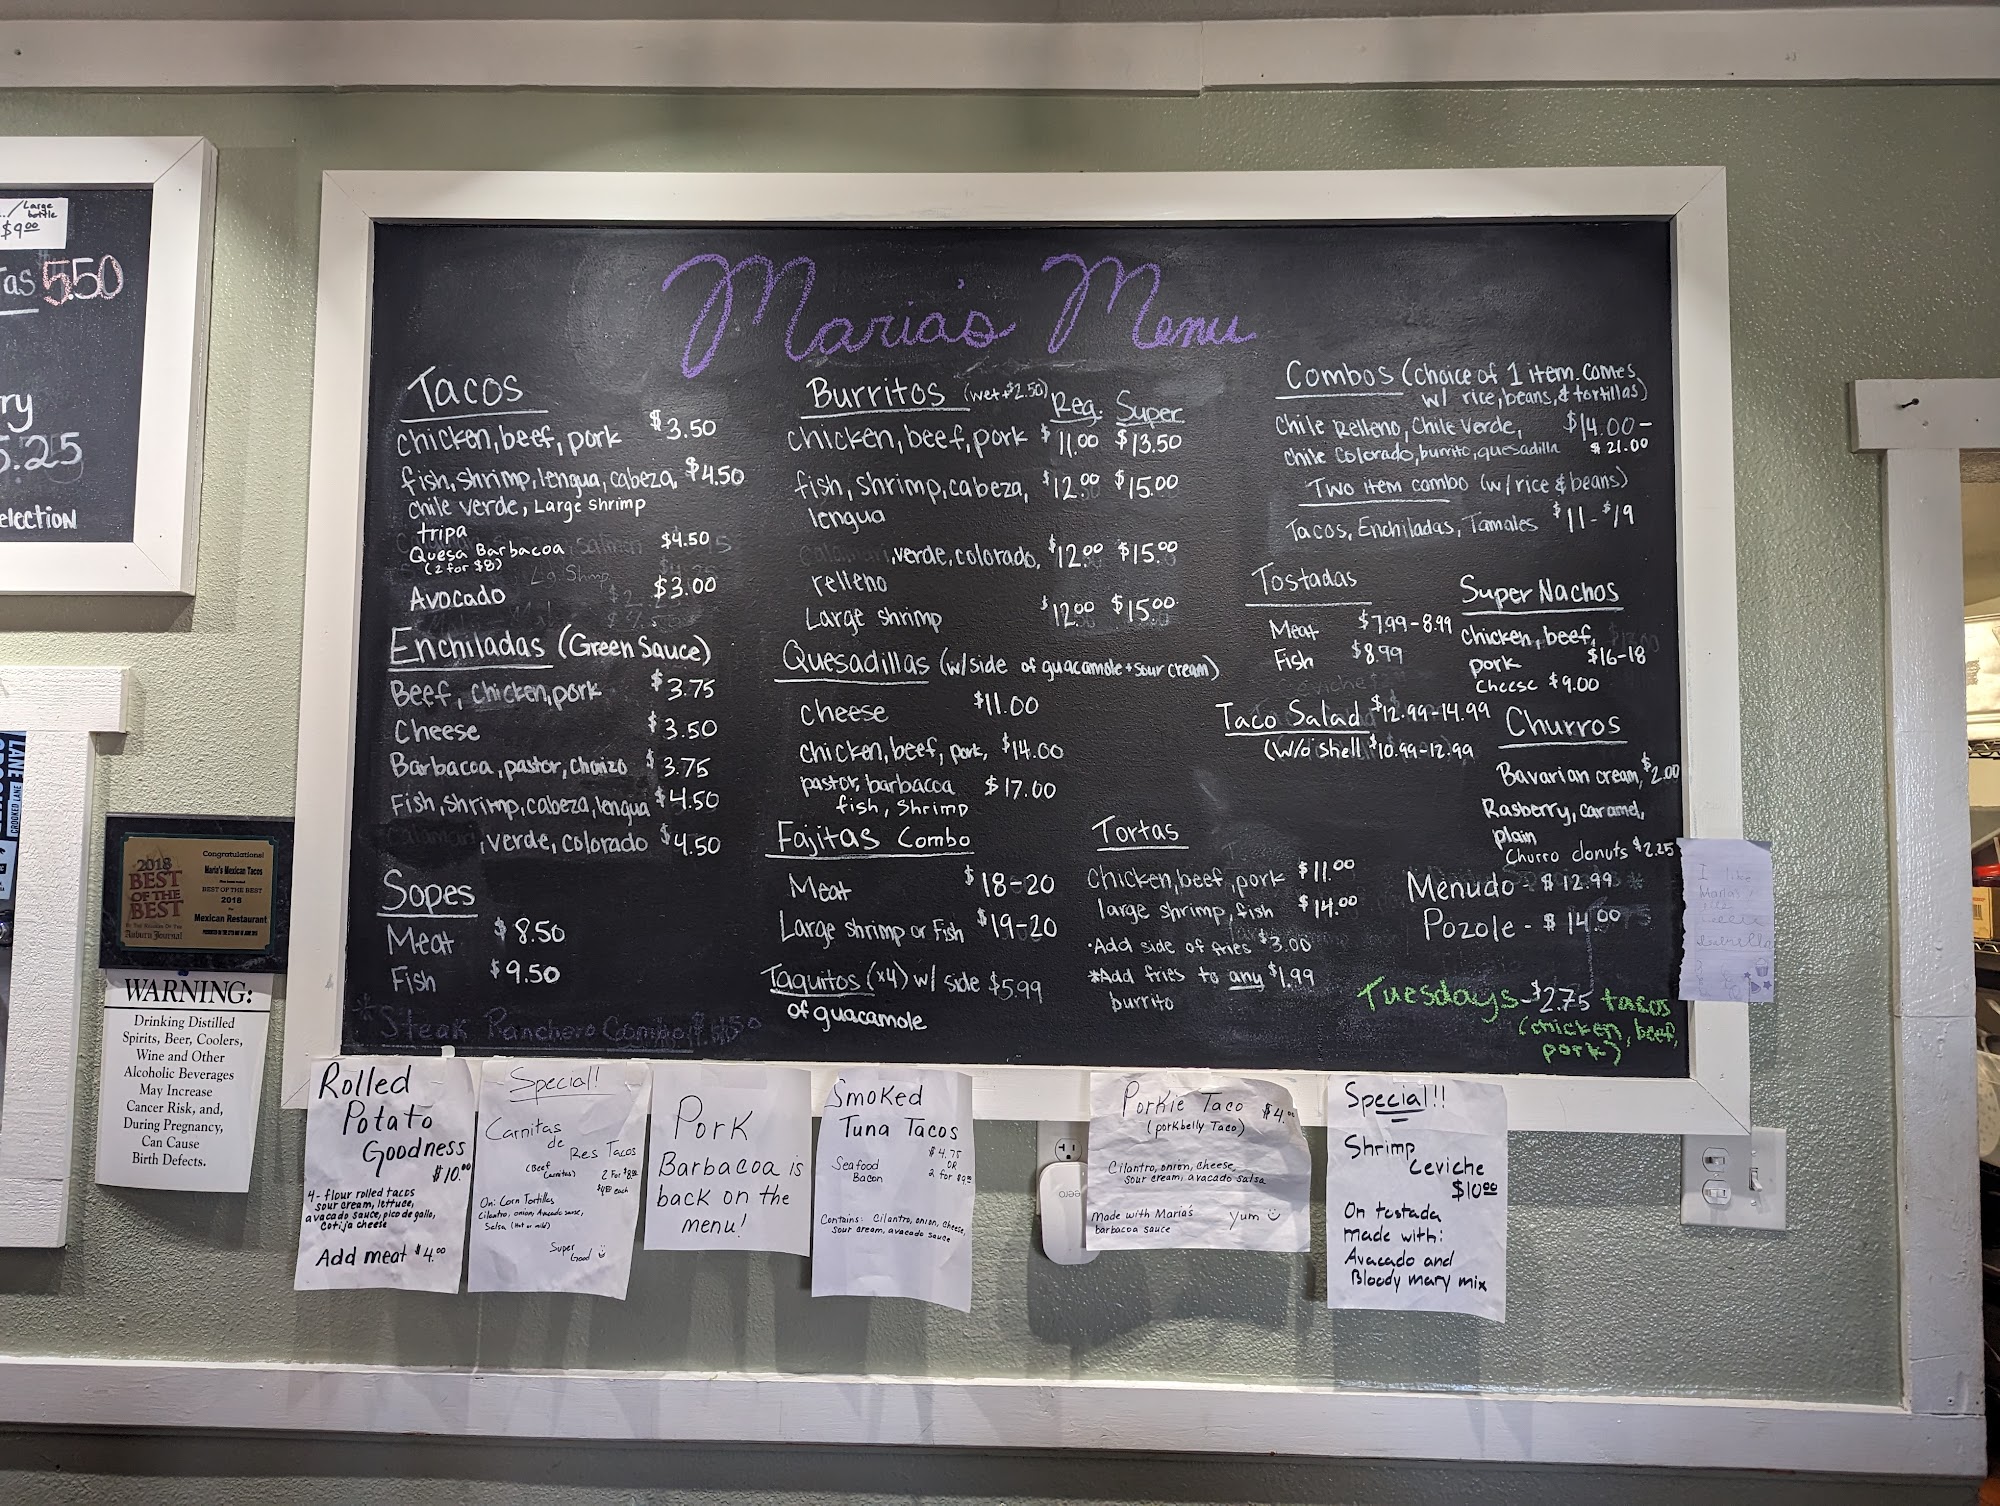 /Large
bottle
$9.00
as 5.50
ry
5.25
election
Maria's Menu
Tacos
chicken, beef, pork $3.50
fish, shrimp, lengua, cabeza, $4.50
chile verde, Large shrimp
tripa
Quesa Barbacoa $4.50
(2 for $8)
Avocado $3.00
Enchiladas (Green Sauce)
Beef, chicken, pork $3.75
Cheese $3.50
Barbacoa, pastor, chorizo $3.75
Fish, shrimp, cabeza, lengua $4.50
Calamari, verde, colorado $4.50
Sopes
Meat $8.50
Fish $9.50
*Steak Ranchero Combo
Burritos (wet + $2.50) Reg. Super
chicken, beef, pork $11.00 $13.50
fish, shrimp, cabeza, $12.00 $15.00
lengua
calamari, verde, colorado, $12.00 $15.00
relleno
Large shrimp $12.00 $15.00
Quesadillas (w/side of guacamole + sour cream)
cheese $11.00
chicken, beef, pork, $14.00
pastor, barbacoa $17.00
fish, shrimp
Fajitas Combo
Meat $18-20
Large shrimp or Fish $19-20
Taquitos (x4) w/ side $5.99
of guacamole
Tortas
chicken, beef, pork $11.00
large shrimp, fish $14.00
·Add side of fries $3.00
*Add fries to any $1.99
burrito
Combos (choice of 1 item. comes
w/ rice, beans, & tortillas)
Chile Relleno, Chile Verde, $14.00-
chile colorado, burrito, quesadilla $21.00
Two item combo (w/rice & beans)
Tacos, Enchiladas, Tamales $11-$19
Tostadas
Meat $7.99-8.99
Fish $8.99
Taco Salad $12.99-14.99
(w/o shell $10.99-12.99
Super Nachos
chicken, beef,
pork $16-18
cheese $9.00
Churros
Bavarian cream, $2.00
Rasberry, caramel,
plain
Churro donuts $2.25
Menudo - $12.99
Pozole - $14.00
Tuesdays-$2.75 tacos
(chicken, beef,
pork)
2018
BEST
OF THE
BEST
Auburn Journal
Congratulations!
Maria's Mexican Tacos
BEST OF THE BEST
2018
Mexican Restaurant
WARNING:
Drinking Distilled
Spirits, Beer, Coolers,
Wine and Other
Alcoholic Beverages
May Increase
Cancer Risk, and,
During Pregnancy,
Can Cause
Birth Defects.
Rolled
Potato
Goodness
$10.00
4- flour rolled tacos
sour cream, lettuce,
avacado sauce, pico de gallo,
cotija cheese
Add meat $4.00
Special!
Carnitas
de
Res Tacos
(Beef
Carnitas)
2 For $8.00
each
On: Corn Tortillas
Cilantro, onion, Avacado sauce,
Salsa (Hot or mild)
Super
Good
Pork
Barbacoa is
back on the
menu!
Smoked
Tuna Tacos
$4.75
OR
2 for $9.00
Seafood
Bacon
Contains: Cilantro, onion, cheese,
sour cream, avacado sauce
Porkie Taco $4.00
(porkbelly Taco)
Cilantro, onion, cheese,
sour cream, avacado salsa
Made with Maria's
barbacoa sauce
Yum
Special!!
Shrimp
Ceviche
$10.00
On tostada
made with:
Avacado and
Bloody mary mix
I like
Maria's
eero
LANE
CROOKED LANE